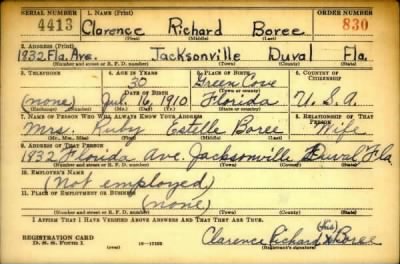 SERIAL NUMBER 1. NAME (Print) ORDER NUMBER
4413 Clarence Richard Boree 830
(First) (Middle) (Last)
2. ADDRESS (Print)
1932 Fla. Ave. Jacksonville Duval Fla.
(Number and street or R. F. D. number) (Town) (County) (State)
3. TELEPHONE 4. AGE IN YEARS 5. PLACE OF BIRTH 6. COUNTRY OF CITIZENSHIP
32 Green Cove
DATE OF BIRTH (Town or county)
(none) Jul. 16, 1910 Florida U. S. A.
(Mo.) (Day) (Yr.) (State or country)
7. NAME OF PERSON WHO WILL ALWAYS KNOW YOUR ADDRESS 8. RELATIONSHIP OF THAT PERSON
Mrs. Ruby Estelle Boree Wife
(Mr., Mrs., Miss) (First) (Middle) (Last)
9. ADDRESS OF THAT PERSON
1932 Florida Ave. Jacksonville Duval Fla
(Number and street or R. F. D. number) (Town) (County) (State)
10. EMPLOYER'S NAME
(Not employed)
11. PLACE OF EMPLOYMENT OR BUSINESS
(none)
(Number and street or R. F. D. number) (Town) (County) (State)
I AFFIRM THAT I HAVE VERIFIED ABOVE ANSWERS AND THAT THEY ARE TRUE.
REGISTRATION CARD
D. S. S. Form 1 Clarence Richard Boree
(Registrant's signature)